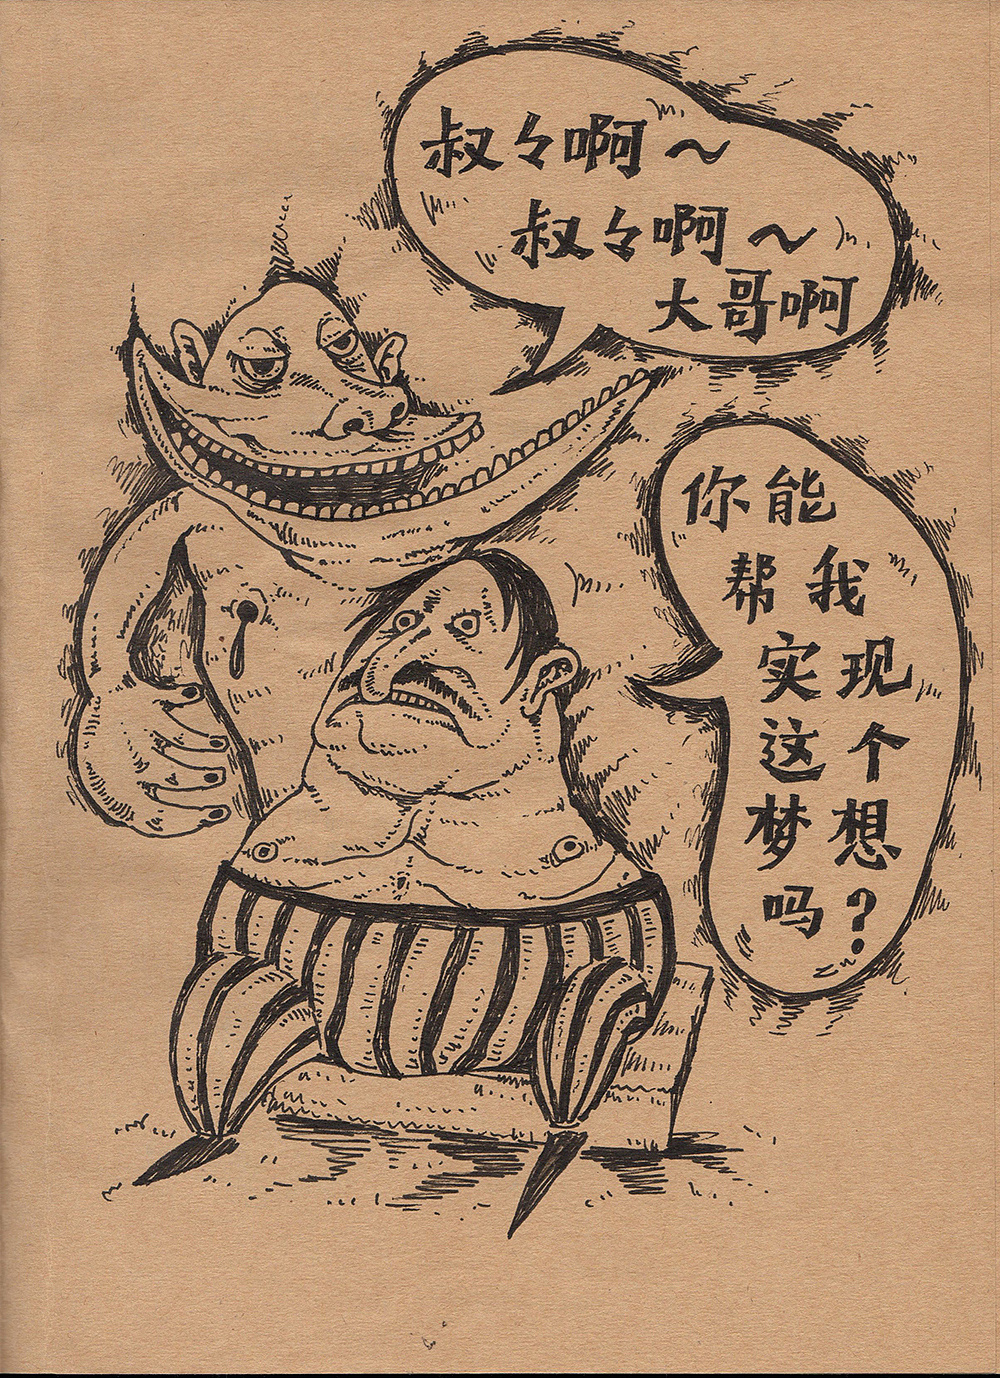 叔々啊～
叔々啊～
大哥啊
你能
帮我
实现
这个
梦想
吗？